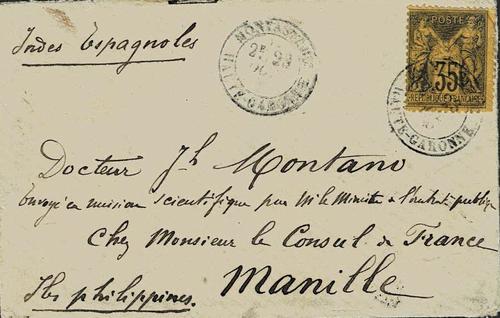 Indes Espagnoles
MONTASTRUC
2E 23
HTE-GARONNE
POSTE
35
REPUBLIQUE FRANCAISE
HTE-GARONNE
Docteur Jh Montano
Envoyé en mission scientifique par Mr le Ministre de l'instrat publique
Chez Monsieur le Consul de France
Manille
Iles philippines.